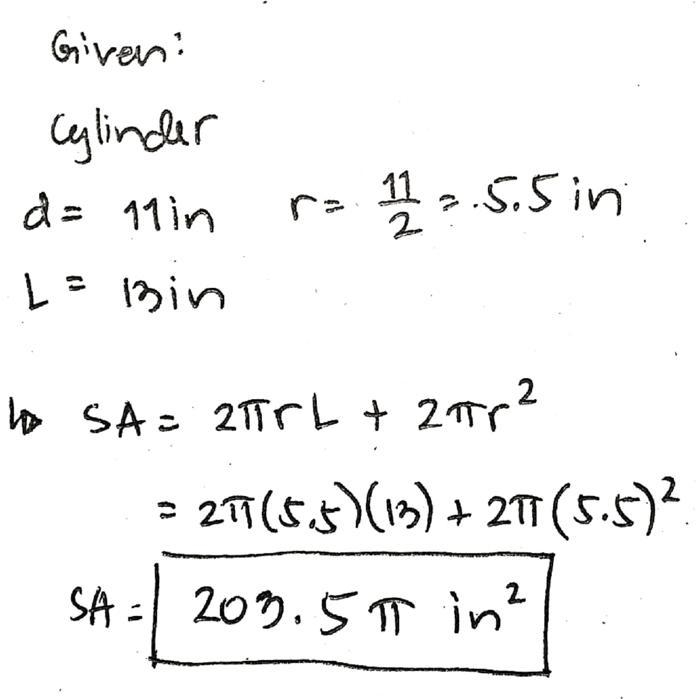 Given:
Cylinder
d = 11in r = 11/2 = 5.5 in
L = 13in
↳ SA = 2πrL + 2πr²
= 2π(5.5)(13) + 2π(5.5)²
SA = 203.5 π in²